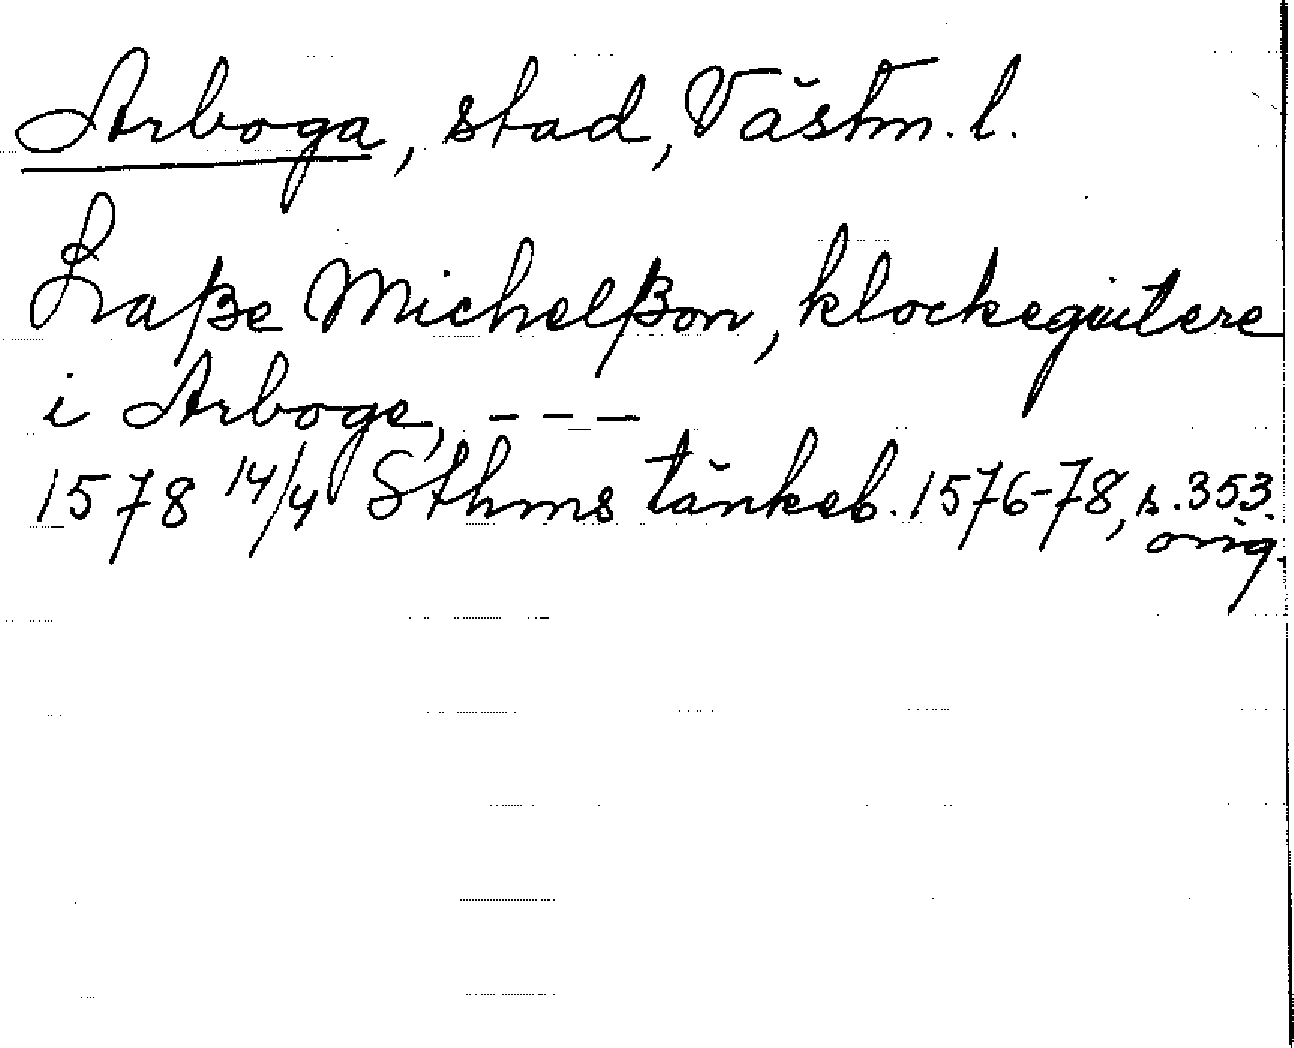 Arboga, stad, Västm. l.
Laße Michelßon, klockegiutere
i Arboge, - - -
1578 14/4 Sthms tänkeb. 1576-78, s. 353.
orig.